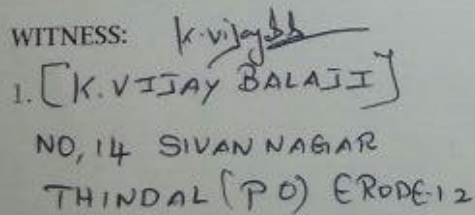 WITNESS: K. Vijay
1. [K. VIJAY BALAJI]
NO, 14 SIVAN NAGAR
THINDAL (PO) ERODE-12